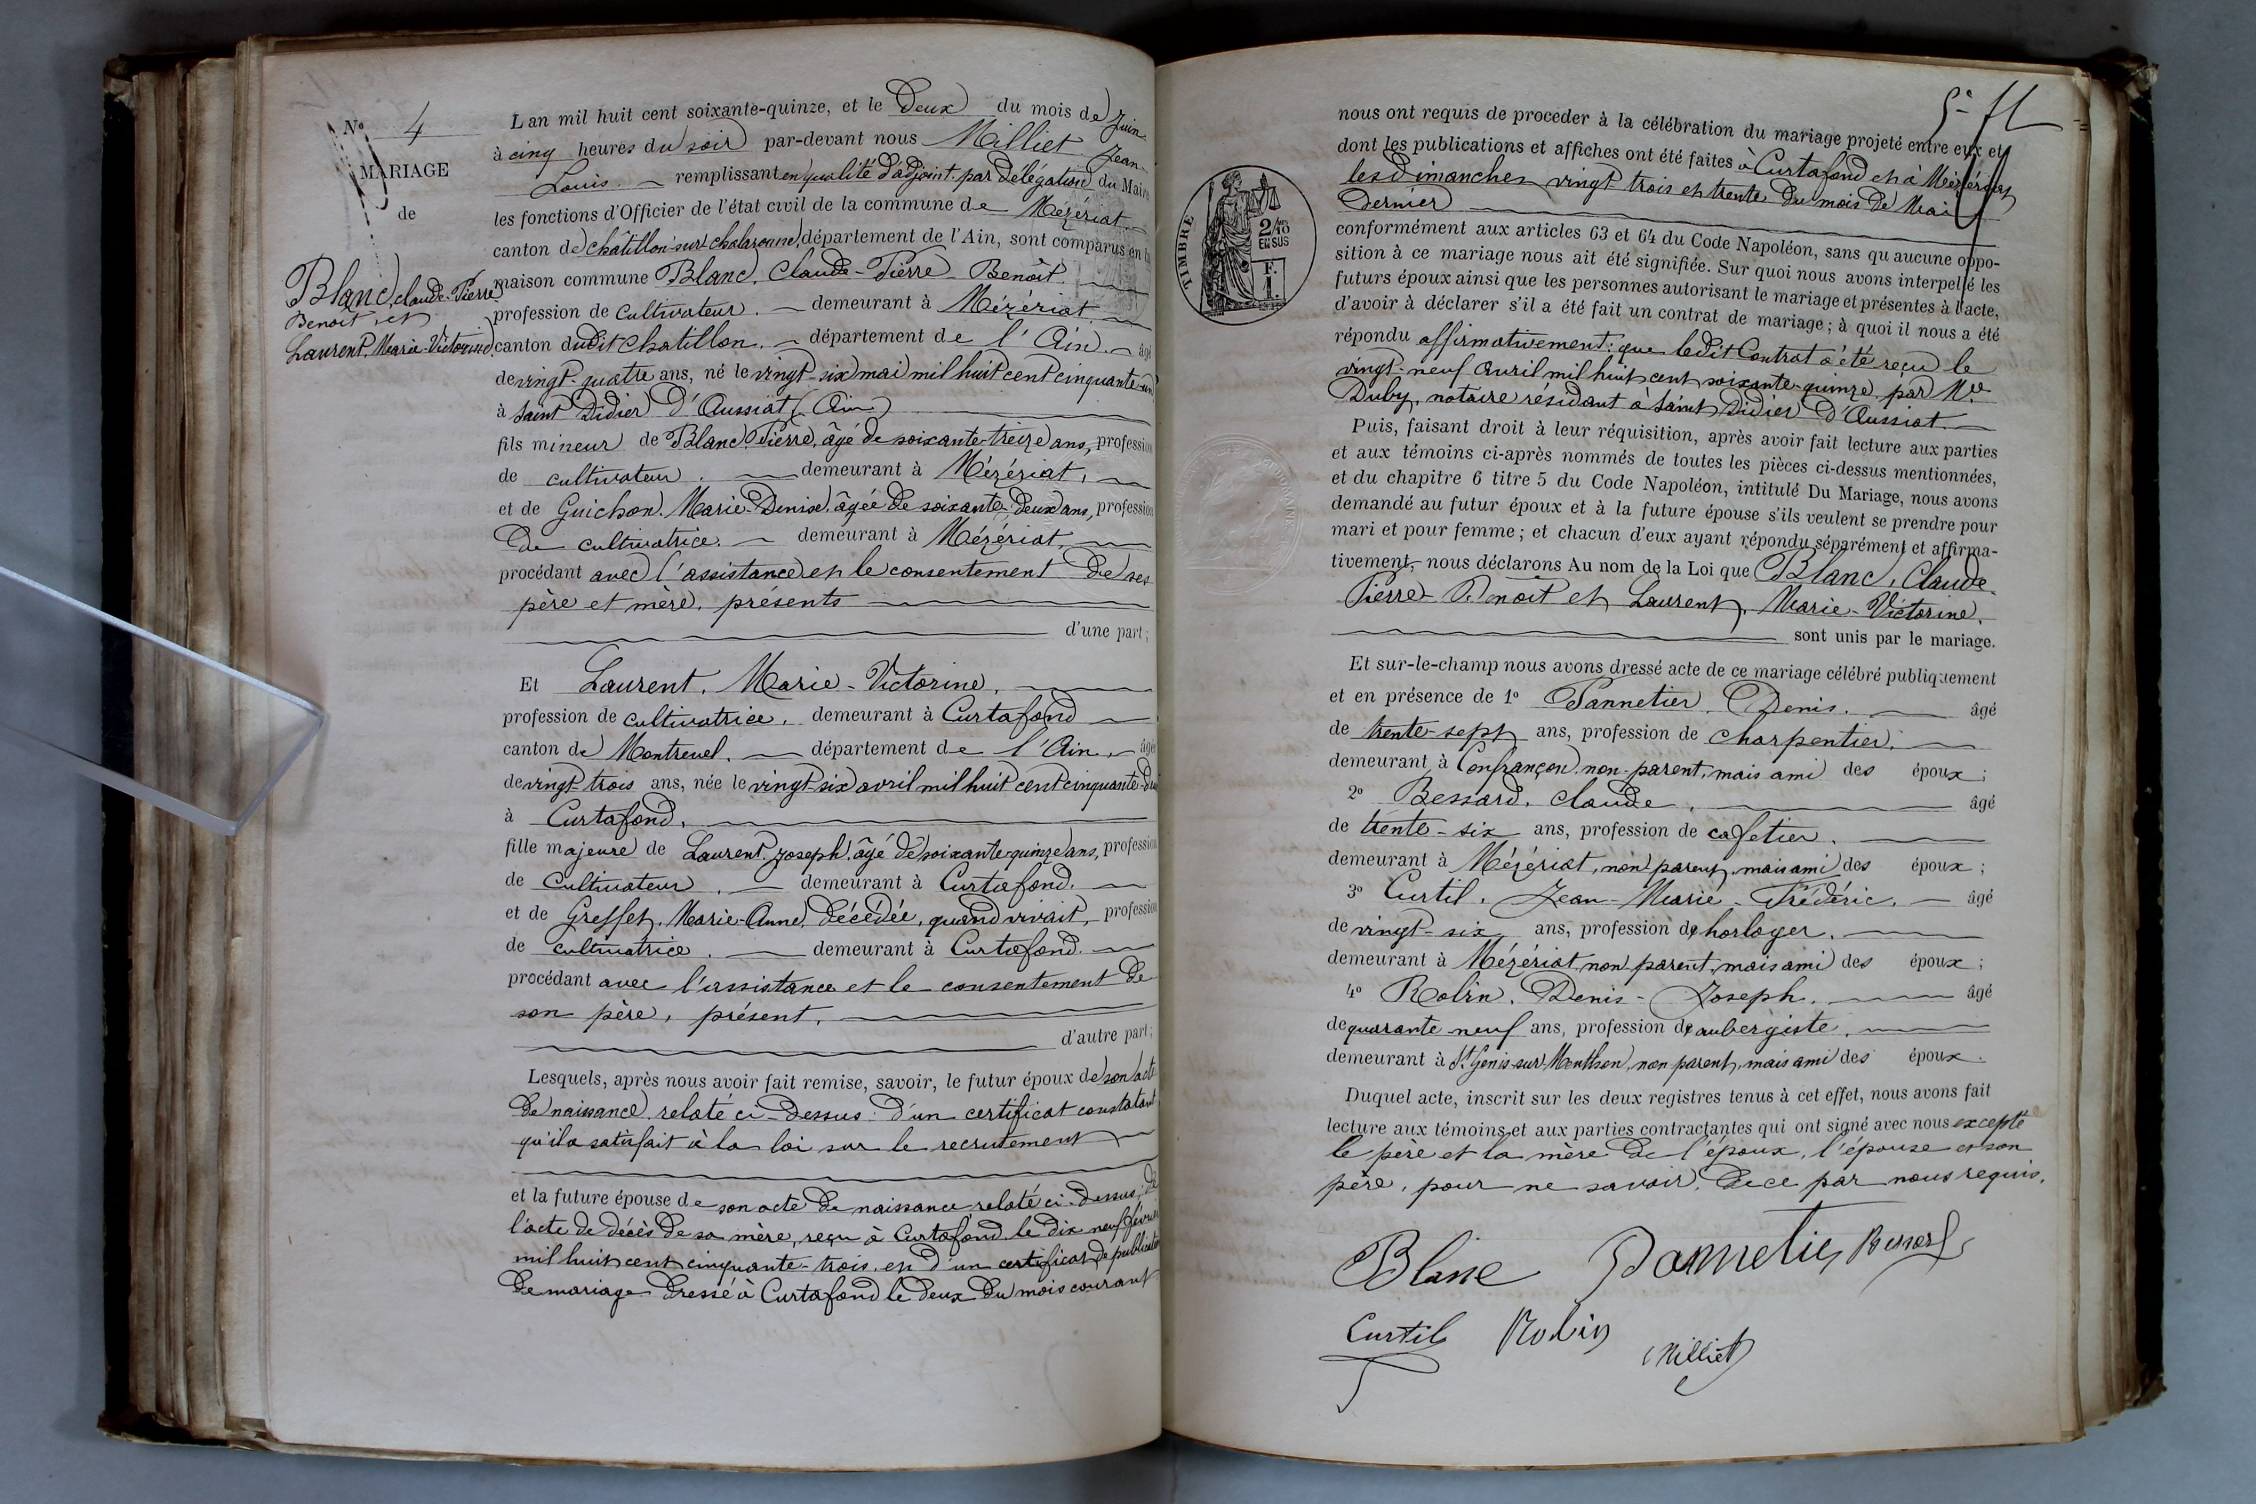 No 4
MARIAGE
de
Blanc, Claude-Pierre
Benoît, et
Laurent, Marie-Victorine
L'an mil huit cent soixante-quinze, et le Deux du mois de Juin
à cinq heures du soir par-devant nous Milliet Jean-
Louis. remplissant en qualité d'adjoint par Délégation du Maire
les fonctions d'Officier de l'état civil de la commune de Mézériat
canton de Châtillon-sur-Chalaronne, département de l'Ain, sont comparus en la
maison commune Blanc, Claude-Pierre-Benoît.
profession de cultivateur. demeurant à Mézériat
canton dudit Chatillon. département de l'Ain. âgé
de vingt-quatre ans, né le vingt-six mai mil huit cent cinquante-un
à Saint Didier D'Aussiat (Ain)
fils mineur de Blanc, Pierre, âgé de soixante-treize ans, profession
de cultivateur. demeurant à Mézériat,
et de Guichon, Marie-Denise, âgée de soixante-deux ans, profession
de cultivatrice. demeurant à Mézériat,
procédant avec l'assistance et le consentement de ses
père et mère, présents
d'une part;
Et Laurent, Marie-Victorine,
profession de cultivatrice, demeurant à Curtafond
canton de Montrevel. département de l'Ain, âgée
de vingt-trois ans, née le vingt-six avril mil huit cent cinquante-deux
à Curtafond,
fille majeure de Laurent, Joseph, âgé de soixante-quinze ans, profession
de cultivateur. demeurant à Curtafond.
et de Greffet, Marie-Anne, décédée, quand vivait, profession
de cultivatrice. demeurant à Curtafond.
procédant avec l'assistance et le consentement de
son père, présent,
d'autre part;
Lesquels, après nous avoir fait remise, savoir, le futur époux de son acte
de naissance relaté ci-dessus: d'un certificat constatant
qu'il a satisfait à la loi sur le recrutement
et la future épouse de son acte de naissance relaté ci-dessus, de
l'acte de décès de sa mère, reçu à Curtafond le dix neuf février
mil huit cent cinquante-trois, et d'un certificat de publication
de mariage dressé à Curtafond le deux du mois courant
TIMBRE
2/10
EN SUS
F.
1
nous ont requis de procéder à la célébration du mariage projeté entre eux et
dont les publications et affiches ont été faites à Curtafond et à Mézériat,
les Dimanches vingt-trois et trente du mois de Mai
dernier
conformément aux articles 63 et 64 du Code Napoléon, sans qu'aucune oppo-
sition à ce mariage nous ait été signifiée. Sur quoi nous avons interpellé les
futurs époux ainsi que les personnes autorisant le mariage et présentes à l'acte,
d'avoir à déclarer s'il a été fait un contrat de mariage; à quoi il nous a été
répondu affirmativement: que ledit Contrat a été reçu le
vingt-neuf avril mil huit cent soixante-quinze par Me
Duby, notaire résidant à Saint Didier D'Aussiat.
Puis, faisant droit à leur réquisition, après avoir fait lecture aux parties
et aux témoins ci-après nommés de toutes les pièces ci-dessus mentionnées,
et du chapitre 6 titre 5 du Code Napoléon, intitulé Du Mariage, nous avons
demandé au futur époux et à la future épouse s'ils veulent se prendre pour
mari et pour femme; et chacun d'eux ayant répondu séparément et affirma-
tivement, nous déclarons Au nom de la Loi que Blanc, Claude-
Pierre-Benoît et Laurent, Marie-Victorine.
sont unis par le mariage.
Et sur-le-champ nous avons dressé acte de ce mariage célébré publiquement
et en présence de 1o Pannetier, Denis. âgé
de trente-sept ans, profession de charpentier.
demeurant à Confrançon, non-parent, mais ami des époux;
2o Bessard, Claude, âgé
de trente-six ans, profession de cafetier.
demeurant à Mézériat, non parent, mais ami des époux;
3o Curtil, Jean-Marie-Frédéric. âgé
de vingt-six ans, profession d'horloger.
demeurant à Mézériat, non parent, mais ami des époux;
4o Robin, Denis-Joseph. âgé
de quarante neuf ans, profession d'aubergiste.
demeurant à St Genis-sur-Menthon, non parent, mais ami des époux.
Duquel acte, inscrit sur les deux registres tenus à cet effet, nous avons fait
lecture aux témoins et aux parties contractantes qui ont signé avec nous excepté
le père et la mère de l'époux, l'épouse et son
père, pour ne savoir, de ce par nous requis.
Blanc Pannetier Bessard
Curtil Robin Milliet